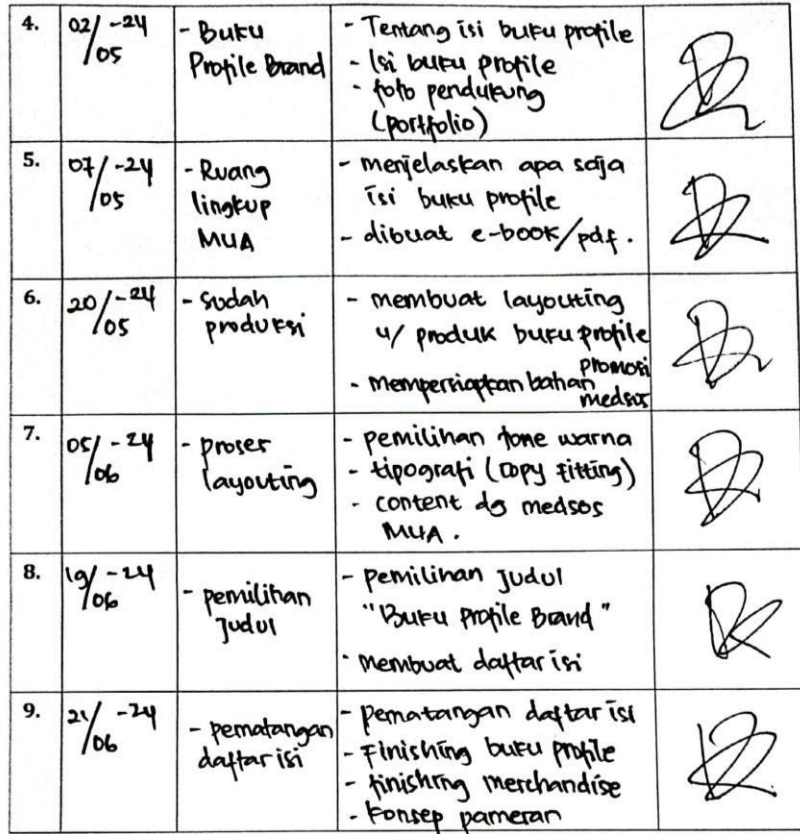 4.
02/05 -24
- Buku
Profile Brand
- Tentang isi buku profile
- Isi buku profile
- foto pendukung
(portfolio)
5.
07/05 -24
- Ruang
lingkup
MUA
- menjelaskan apa saja
isi buku profile
- dibuat e-book/pdf.
6.
20/05 -24
- sudah
produksi
- membuat layouting
u/ produk buku profile
- mempersiapkan bahan promosi
medsos
7.
05/06 -24
- proses
layouting
- pemilihan tone warna
- tipografi (copy fitting)
- content dg medsos
MUA.
8.
19/06 -24
- pemilihan
judul
- pemilihan judul
"Buku Profile Brand"
- membuat daftar isi
9.
21/06 -24
- pematangan
daftar isi
- pematangan daftar isi
- Finishing buku profile
- finishing merchandise
- konsep pameran